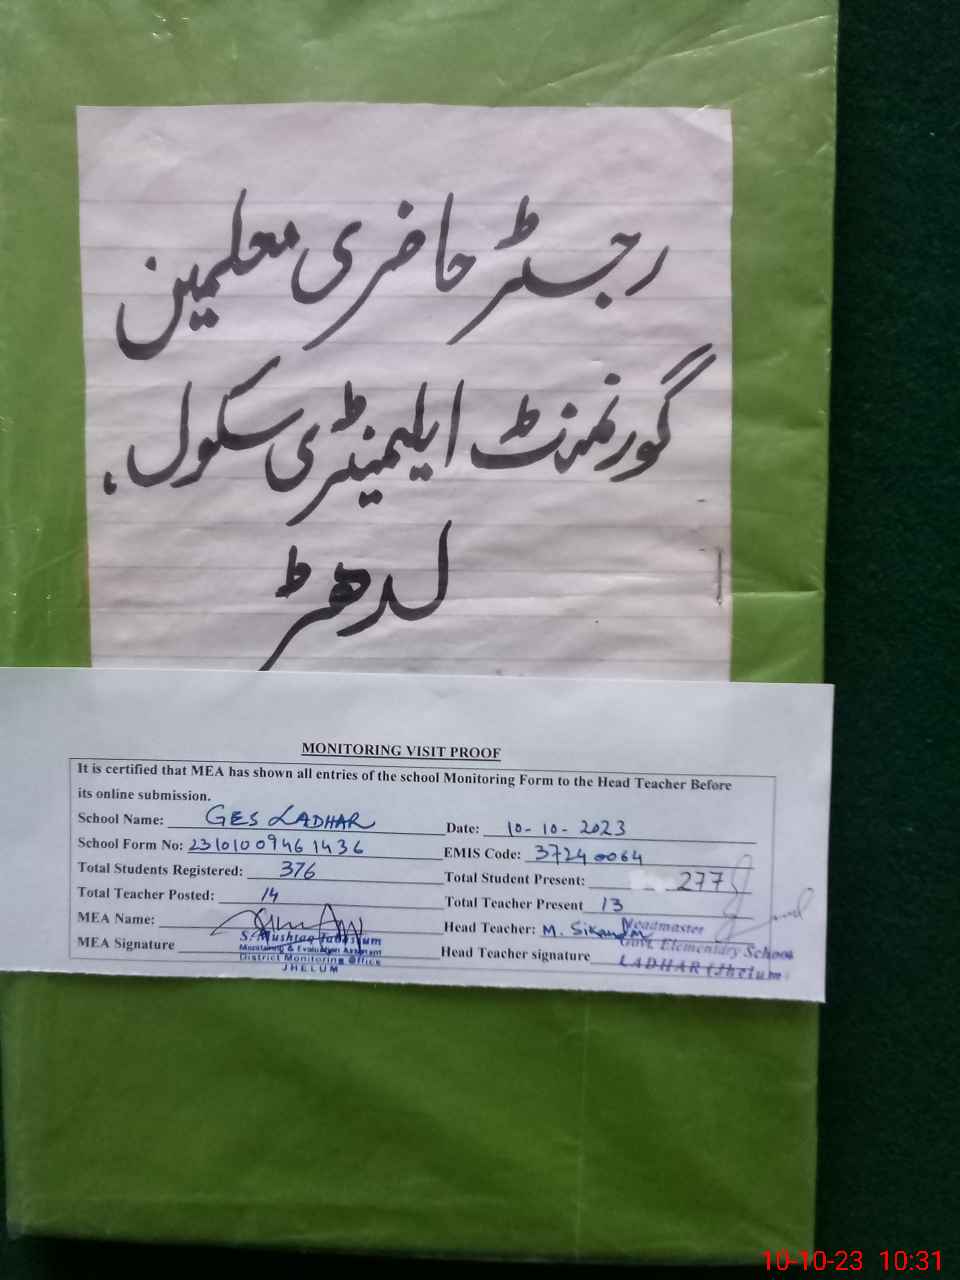 رجسٹر حاضری معلمین
گورنمنٹ ایلیمنٹری سکول،
لدھڑ
MONITORING VISIT PROOF
It is certified that MEA has shown all entries of the school Monitoring Form to the Head Teacher Before
its online submission.
School Name: GES LADHAR Date: 10-10-2023
School Form No: 23101009461436 EMIS Code: 37240064
Total Students Registered: 376 Total Student Present: 277
Total Teacher Posted: 14 Total Teacher Present 13
MEA Name: Head Teacher: M. Sikander
MEA Signature Head Teacher signature
S. Mushtaq Tabassum
Monitoring & Evaluation Assistant
District Monitoring Office
JHELUM
Headmaster
Govt. Elementary School
LADHAR (Jhelum)
10-10-23 10:31